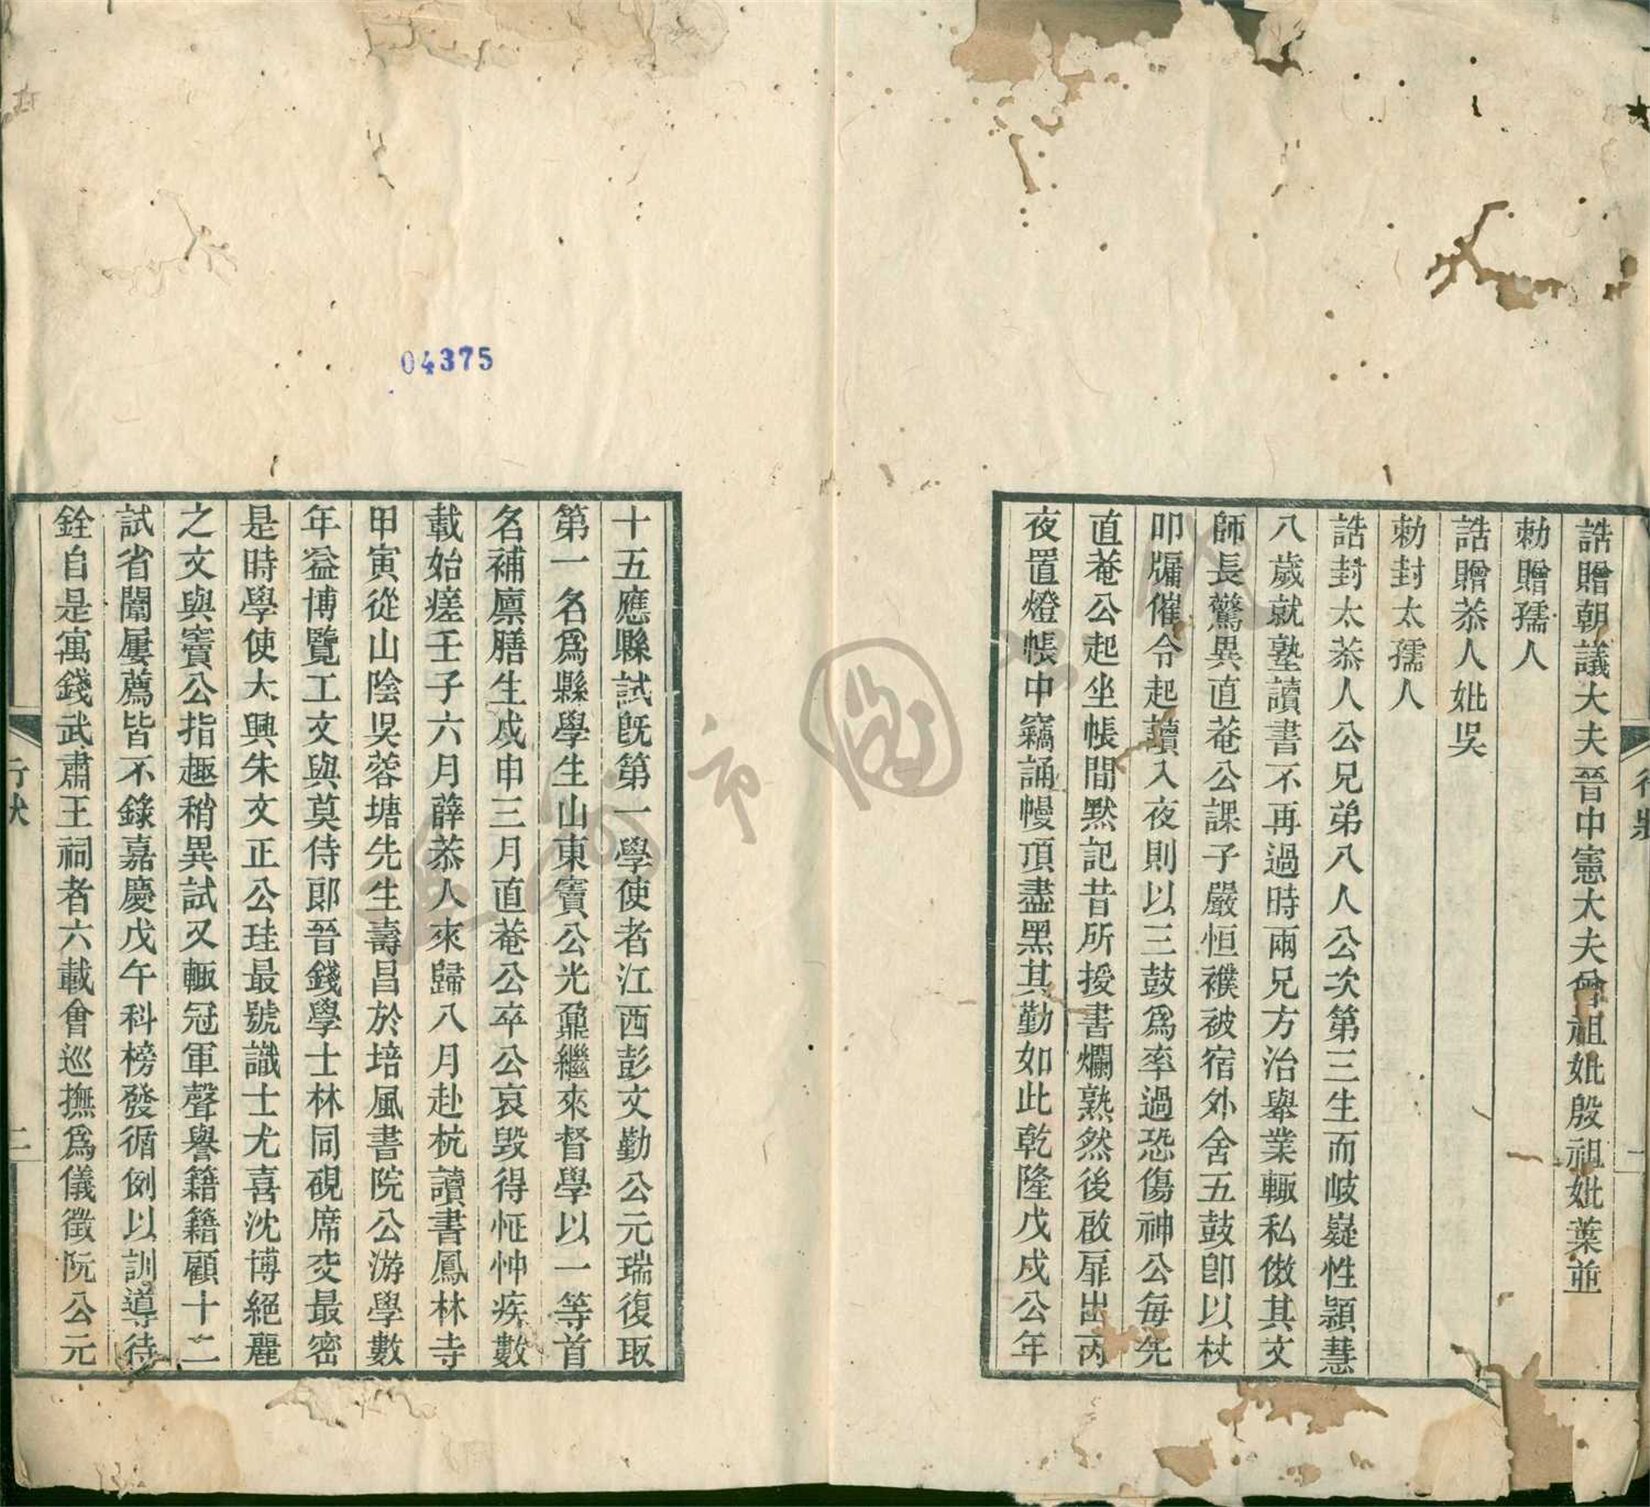 誥贈朝議大夫晉中憲大夫曾祖妣殷祖妣葉並
勅贈孺人
誥贈恭人妣吳
勅封太孺人
誥封太恭人公兄弟八人公次第三生而岐嶷性穎慧
八歲就塾讀書不再過時兩兄方治舉業輒私倣其文
師長驚異直菴公課子嚴恒襆被宿外舍五鼓卽以杖
叩牖催令起讀入夜則以三鼓爲率過恐傷神公每先
直菴公起坐帳間默記昔所授書爛熟然後啟扉出丙
夜置燈帳中竊誦幔頂盡黑其勤如此乾隆戊戌公年
十五應縣試旣第一學使者江西彭文勤公元瑞復取
第一名爲縣學生山東竇公光鼐繼來督學以一等首
名補廩膳生戊申三月直菴公卒公哀毀得怔忡疾數
載始瘥壬子六月薛恭人來歸八月赴杭讀書鳳林寺
甲寅從山陰吳蓉塘先生壽昌於培風書院公游學數
年益博覽工文與莫侍郎晉錢學士林同硯席交最密
是時學使大興朱文正公珪最號識士尤喜沈博絕麗
之文與竇公指趣稍異試又輒冠軍聲譽籍籍顧十二
試省闈屢薦皆不錄嘉慶戊午科榜發循例以訓導待
銓自是寓錢武肅王祠者六載會巡撫爲儀徵阮公元
行狀
二
04375